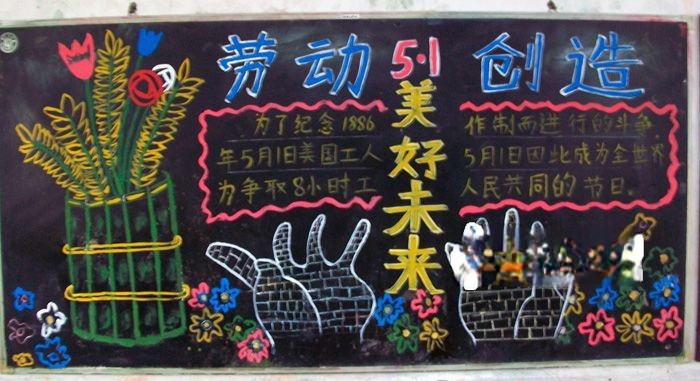 劳动 5·1 创造
美好未来
为了纪念1886
年5月1日美国工人
为争取8小时工
作制而进行的斗争.
5月1日因此成为全世界
人民共同的节日.